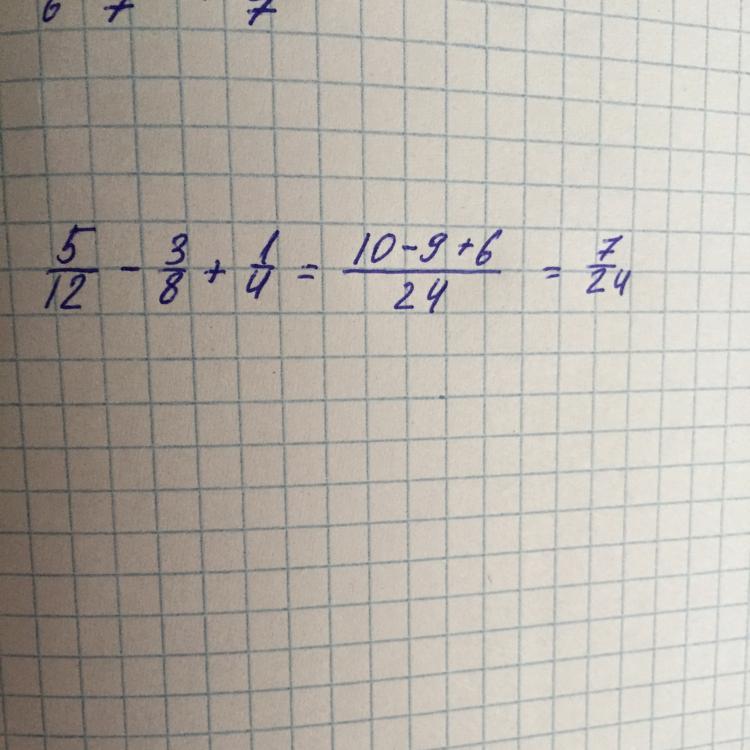 6 7 7
5/12 - 3/8 + 1/4 = (10-9+6)/24 = 7/24